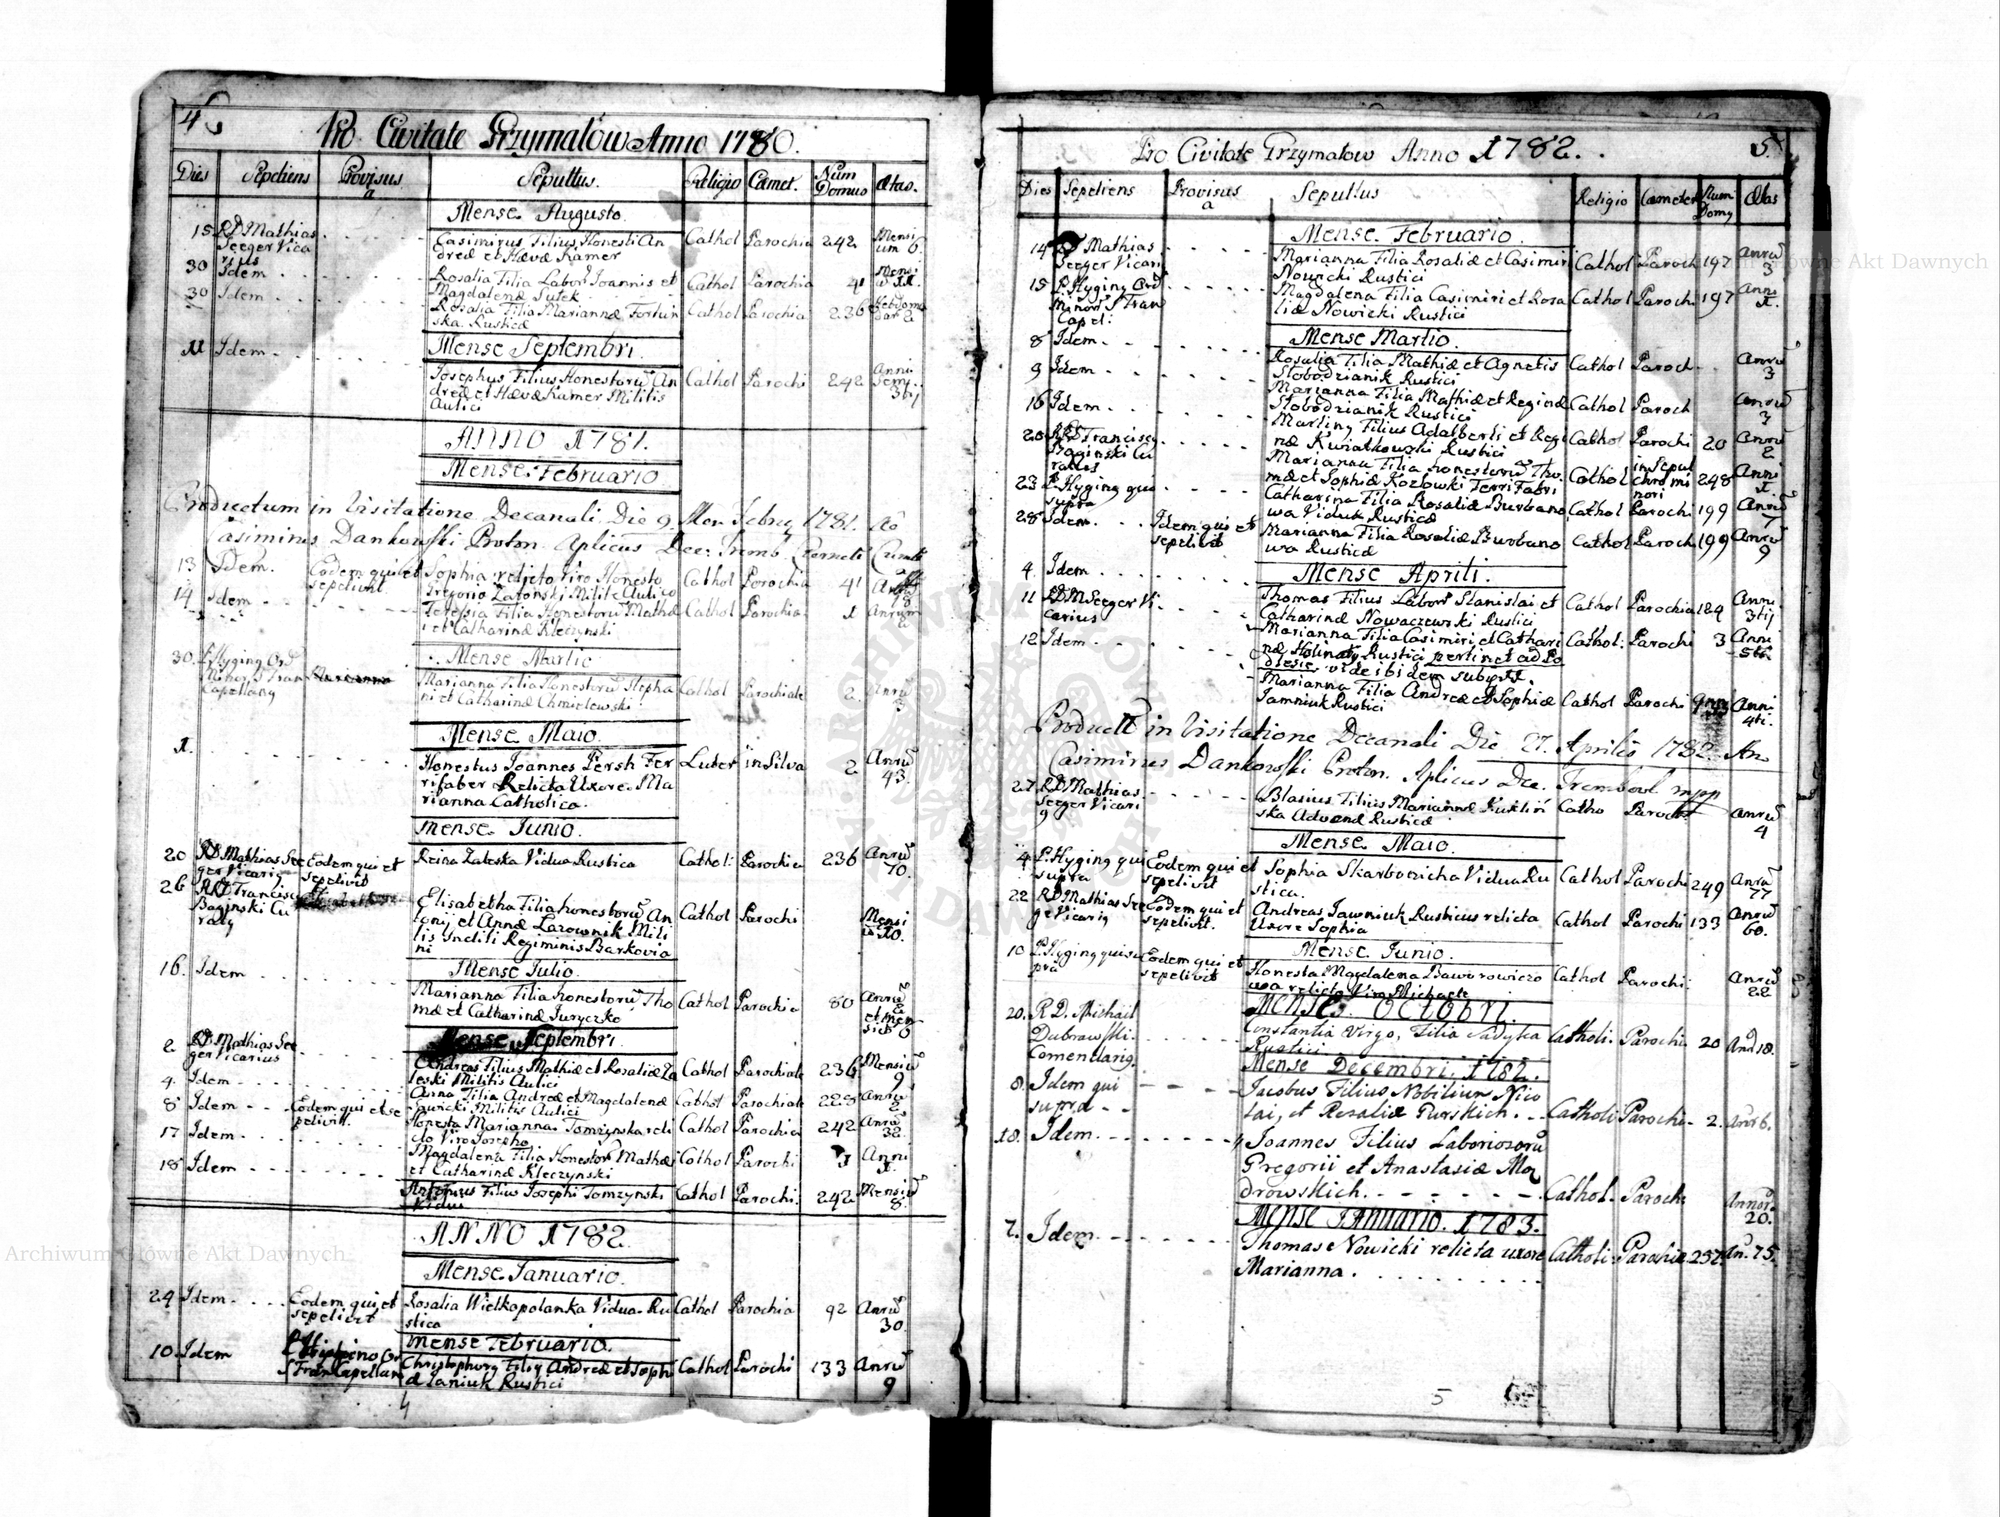 4
Pro Civitate Grzymałów Anno 1780.
Dies Sepeliens Provisus a Sepultus. Religio Cæmet. Num Domus Ætas.
Mense Augusto.
15 RD Mathias Seeger Vicarius
Casimirus Filius Honesti An
dreæ et Hævæ Kamer
Cathol Parochia 242 Mensi
um 6.
30 Idem
Rosalia Filia Labor Joannis et
Magdalenæ Sutek
Cathol Parochia 41
30 Idem
Rosalia Filia Mariannæ Fortun
ska Rusticæ
Cathol Parochia 236
Mense Septembri
11 Idem
Josephus Filius Honestorũ An
dreæ et Hævæ Kamer Militis
Aulici
Cathol Parochi 242 Anni
Semj.
ANNO 1781.
Mense Februario
Productum in Visitatione Decanali Die 9 Men Febrij 1781. Aõ
Casimirus Dankowski Proton. Aplicus Dec: Tremb.
13 Idem. Eodem qui et
sepelivit
Sophia relicto Viro Honesto
Gregorio Zatonski Milite Aulico
Cathol Parochia 41
14 Idem
Teressia Filia Honestorũ Mathæ
i et Catharinæ Kleczynski
Cathol Parochia 1 Anrum
Mense Martio
30. P Hyging Ord
Minor S Fran
Capellang
Marianna Filia Honestorũ Stepha
ni et Catharinæ Chmielewski
Cathol Parochiale 2. Anrũ
Mense Maio.
1.
Honestus Joannes Persh Fer
rifaber Relicta Uxore Ma
rianna Catholica.
Luter in Silva 2 Anrũ
43.
Mense Junio.
20 RD Mathias See
ger Vicarig
Eodem qui et
sepelivit
Reina Zaleska Vidua Rustica
Cathol: Parochia 236 Anrũ
70.
26 RD Francisc
Baginski Cu
ratg
Elisabetha Filia honestorũ An
tonij et Annæ Lazownik Mili
tis Incliti Regiminis Barkovia
ni
Cathol Parochi Mensi
ũ 10.
Mense Julio.
16. Idem
Marianna Filia honestorũ Tho
mæ et Catharinæ Juryczko
Cathol Parochia 80 Anrũ
2
et men
siũ 6
Mense Septembri
2 RD Mathias See
ger Vicarius
Andreas Filius Mathiæ et Rosaliæ Za
leski Militis Aulici
Cathol Parochiale 236 Mensiũ
9
4. Idem
Anna Filia Andreæ et Magdalenæ
Sawicki Militis Aulici
Cathol Parochiale 228 Anrũ
8 Idem Eodem qui et se
pelivit.
Honesta Marianna Tomzynska reli
cto Viro Josepho
Cathol Parochia 242 Anrũ
32.
17 Idem
Magdalena Filia Honestorũ Mathæi
et Catharinæ Kleczynski
Cathol Parochi 1 Anni
1.
18 Idem
Antonius Filius Josephi Tomzynski
Cathol Parochi. 242 Mensiũ
8.
ANNO 1782.
Mense Januario.
24 Idem Eodem qui et
sepelivit
Rosalia Wielkopolanka Vidua Ru
stica
Cathol Parochia 92 Anrũ
30
Mense Februario.
10 Idem
S Fran Capellan
Christophorg Filig Andreæ et Soph
æ Janiuk Rustici
Cathol Parochi 133 Anrũ
9
4
5.
Pro Civitate Grzymałow Anno 1782.
Dies Sepeliens Provisus a Sepultus Religio Cæmeter Num Domg Ætas
Mense Februario
14 RD Mathias
Seeger Vicari
Marianna Filia Rosaliæ et Casimiri
Nowicki Rustici
Cathol Paroch 197 Anrũ
3
15 P. Hyging Ord
Minor S Fran
Capel:
Magdalena Filia Casimiri et Rosa
liæ Nowicki Rustici
Cathol Parochi 197 Anni
1.
Mense Martio.
8 Idem
Rosalia Filia Mathiæ et Agnetis
Stobodzianik Rustici
Cathol Paroch Anrũ
3
9 Idem
Marianna Filia Mathiæ et Reginæ
Stobodzianik Rustici
Cathol Paroch Anrũ
3
16 Idem
Marting Filius Adalberti et Regi
næ Kwiatkowski Rustici
Cathol Parochi 20 Anrũ
2
20 RD Franciscg
Baginski Cu
ratus
Marianna Filia honestorũ Tho
mæ et Sophiæ Kozlowski Ferri Fabri
Cathol in Sepul
chro mi
nori
248 Anni
1.
23 P. Hyging qui
supra
Catharina Filia Rosaliæ Burbano
wa Viduæ Rusticæ
Cathol Parochi 199 Anrũ
7
28 Idem Idem qui et
sepelivit
Marianna Filia Rosaliæ Burbano
wa Rusticæ
Cathol Paroch 199 Anrũ
9
Mense Aprili.
4. Idem
11 RD M Seeger Vi
carius
Thomas Filius Laborũ Stanislai et
Catharinæ Nowaczewski Rustici
Cathol Parochia 129 Anni
12 Idem
Marianna Filia Casimiri et Cathari
næ Holinaty Rustici pertinet ad Po
dlesie vide ibidem subijt.
Cathol: Parochi 3 Anni
Marianna Filia Andreæ et Sophiæ
Jamniuk Rustici
Cathol Parochi Anni
4ti.
Productũ in Visitatione Decanali Die 27. Aprilis 1782. An
Casimirus Dankowski Proton. Aplicus Dec. Trembowl mpp
27 RD Mathias
Seeger Vicari
g
Blasius Filius Mariannæ Kuklin
ska Advenæ Rusticæ
Catho Paroch Anrũ
4
Mense Maio.
4 P. Hyging qui
supra
Eodem qui et
sepelivit
Sophia Skarboricha Vidua Ru
stica.
Cathol Parochi 249 Anrũ
77
22 RD Mathias See
ger Vicarig
Eodem qui et
sepelivit.
Andreas Jawniuk Rusticus relicta
Uxore Sophia
Cathol Parochi 133 Anrũ
60.
Mense Junio
10 P. Hyging qui su
pra
Eodem qui et
sepelivit
Honesta Magdalena Baworowiczo
wa relicto Viro Michaele
Cathol Parochi. Anrũ
22
MENSE OCTOBRI.
20. R.D. Michael
Dubrawski.
Comendarig.
Constantia Virgo, Filia Sadyka
Rustici
Catholi. Parochi. 20 Anõ 18.
Mense Decembri. 1782.
8. Idem qui
supra
Jacobus Filius Nobilium Nico
lai, et Rosaliæ Purskich.
Catholi Parochi 2. Anõr 6.
18. Idem.
Joannes Filius Laboriosorũ
Gregorii et Anastasiæ Mo
drowskich.
Cathol. Paroch: Annor.
20.
Mense IANuario. 1783.
7. Idem
Thomas Nowicki relicta uxore
Marianna.
Catholi. Parochiæ 257. An. 75.
5
Archiwum Główne Akt Dawnych
Archiwum Główne Akt Dawnych
ARCHIWUM GŁÓWNE AKT DAWNYCH